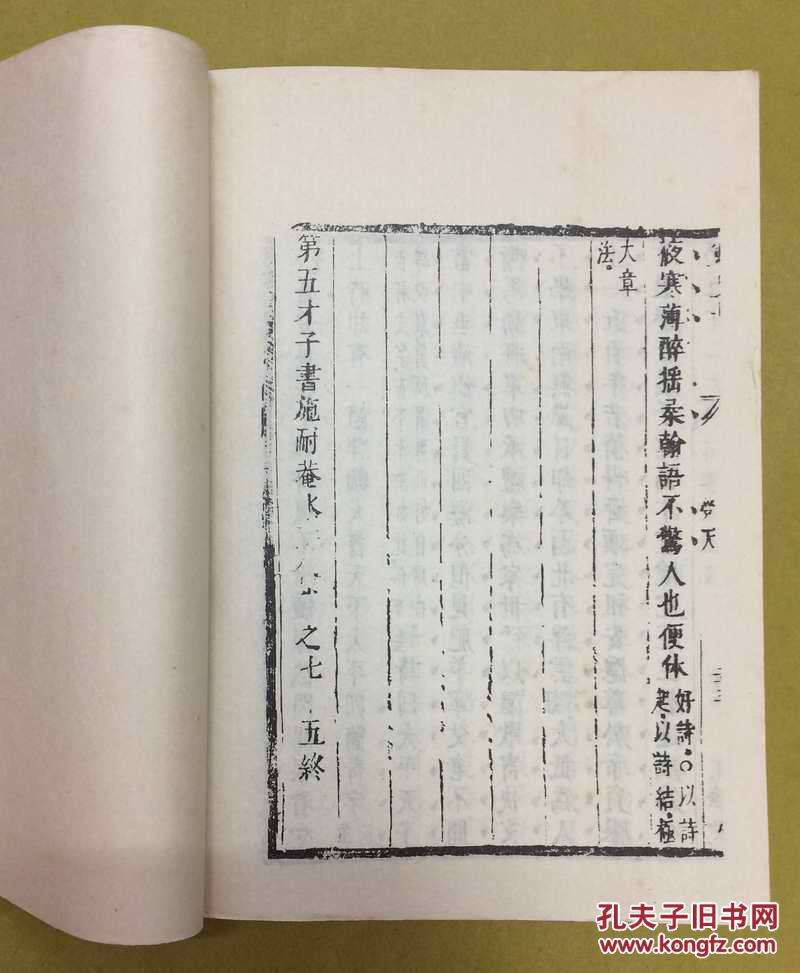 夜寒薄醉搖柔翰語不驚人也便休
好詩。○以詩
起。以詩結。極
大章
法。
第五才子書施耐菴水 之七 五終
孔夫子旧书网
KONGFZ.COM